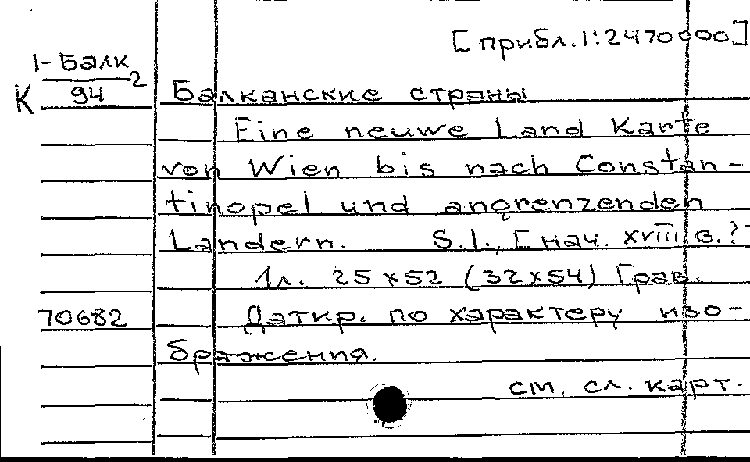 [прибл. 1:2470000]
1-Балк
К 94 2
Балканские страны
Eine neuwe Land Karte
von Wien bis nach Constan-
tinopel und angrenzenden
Landern. S.l., [нач. XVIII в.?]
1л. 25×52 (32×54) Грав.
70682 Датир. по характеру изо-
бражения.
см. сл. карт.